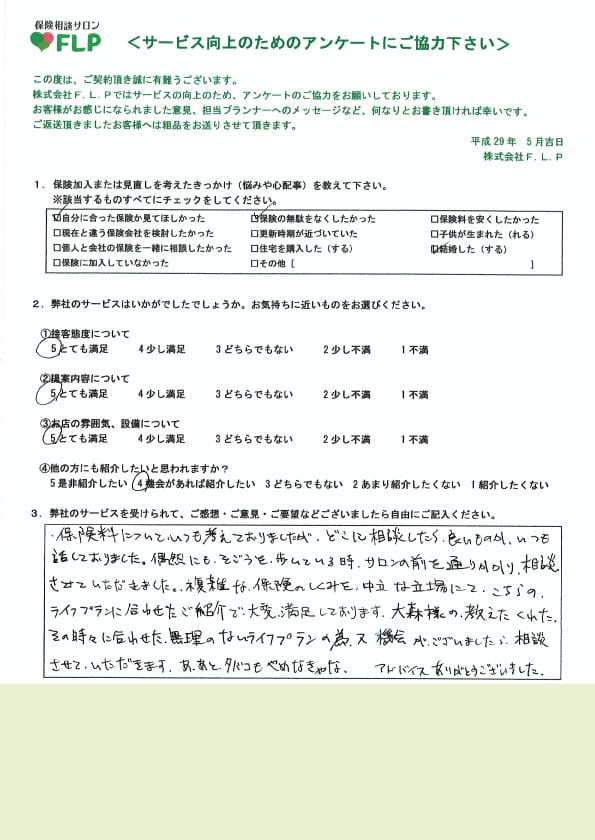 保険相談サロン
FLP
＜サービス向上のためのアンケートにご協力下さい＞
この度は、ご契約頂き誠に有難うございます。
株式会社Ｆ.Ｌ.Ｐではサービスの向上のため、アンケートのご協力をお願いしております。
お客様がお感じになられました意見、担当プランナーへのメッセージなど、何なりとお書き頂ければ幸いです。
ご返送頂きましたお客様へは粗品をお送りさせて頂きます。
平成29年　5月吉日
株式会社Ｆ.Ｌ.Ｐ
１．保険加入または見直しを考えたきっかけ（悩みや心配事）を教えて下さい。
※該当するものすべてにチェックをしてください。
☑自分に合った保険か見てほしかった　☑保険の無駄をなくしたかった　□保険料を安くしたかった
□現在と違う保険会社を検討したかった　□更新時期が近づいていた　□子供が生まれた（れる）
□個人と会社の保険を一緒に相談したかった　□住宅を購入した（する）　☑結婚した（する）
□保険に加入していなかった　□その他［　］
２．弊社のサービスはいかがでしたでしょうか。お気持ちに近いものをお選びください。
①接客態度について
5とても満足　4少し満足　3どちらでもない　2少し不満　1不満
②提案内容について
5とても満足　4少し満足　3どちらでもない　2少し不満　1不満
③お店の雰囲気、設備について
5とても満足　4少し満足　3どちらでもない　2少し不満　1不満
④他の方にも紹介したいと思われますか？
5是非紹介したい　4機会があれば紹介したい　3どちらでもない　2あまり紹介したくない　1紹介したくない
３．弊社のサービスを受けられて、ご感想・ご意見・ご要望などございましたら自由にご記入ください。
・保険料についていつも考えておりましたが、どこに相談したら良いものか、いつも
話しておりました。偶然にも、そごうを歩いている時、サロンの前を通りかかり、相談
させていただきました。複雑な保険のしくみを、中立な立場にて、こちらの、
ライフプランに合わせたご紹介で、大変満足しております。大森様の、教えてくれた、
その時々に合わせた、無理のないライフプランの為、又機会がございましたら、相談
させていただきます。あ、あと、タバコもやめなきゃな、　アドバイスありがとうございました。